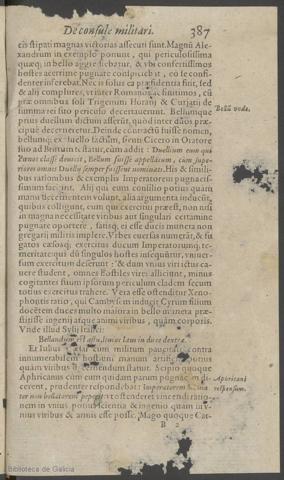 De consule militari. 387
eis stipati magnas victorias assecuti sunt. Magnũ Ale-
xandrum in exemplo ponunt, qui periculosissima
quæq; in bello aggrediebatur, & vbi confertissimos
hostes acerrime pugnare conspiciebat, eo se confi-
denter inferebat. Nec is solus ea præsidentia fuit, sed
& alij complures, vt inter Romanos, & finitimos, cũ
præ omnibus soli Trigemini Horatij & Curiatij de
summa rei suo periculo decertauerunt. Bellumque
prius duellum dictum asserũt, quòd inter duos præ-
cipuè decerneretur. Deinde contractũ fuisse nomen,
bellumq; ex duello factum, sentit Cicero in Oratore
suo ad Brutum testatur, cum addit: Duellium eum qui
Pœnos classe deuicit, Bellum fuisse appellatum, cùm supe-
riores omnes Duellij semper fuissent nominati. His & simili-
bus rationibus & exemplis Imperatorem pugnacis-
simum faciunt. Alij qui eum consilio potius quàm
manu decernentem volunt, alia argumenta inducũt,
quibus colligunt, eum qui exercitui præest, non nisi
in magna necessitate viribus aut singulari certamine
pugnare oportere, satisq; ei esse ducis munera non
gregarij militis implere. Viber
gatos casosq; exercitus ducum Imperatorumq; te-
meritate
sum exercitum deserunt: & dum vnius viri ictus ca-
uere student, omnes hostiles vires alliciunt, minus
cogitantes suum ipsorum periculum cladem secum
totius exercitus trahere. Vera esse ostenditur Xeno-
phontis ratio, qui Cambysem inducit Cyrum filium
docêtem duces multo maiora in bello munera præ-
stitisse ingenij atque animi viribus, quàm corporis.
Vnde illud Sylij Italici:
Bellandum est astu, leuior laus in duce dextræ.
Et Iulius cum militum paucitate contra
innumerabilem hostium manum
quàm viribus decernendum statuit. Scipio quoque
Aphricanus cùm eum quidam parum pugnacem di-
cerent, prudenter respondebat: Imperatorem
ter non bellatorem peperit, vt ostenderet vincendi ratio-
nem in vnius potius scientia & ingenio quàm in v-
niuersi viribus & armis esse posse. Mago quoque Car-
B 2
Bellũ vnde.
Aphricani
responsum.
Biblioteca de Galicia